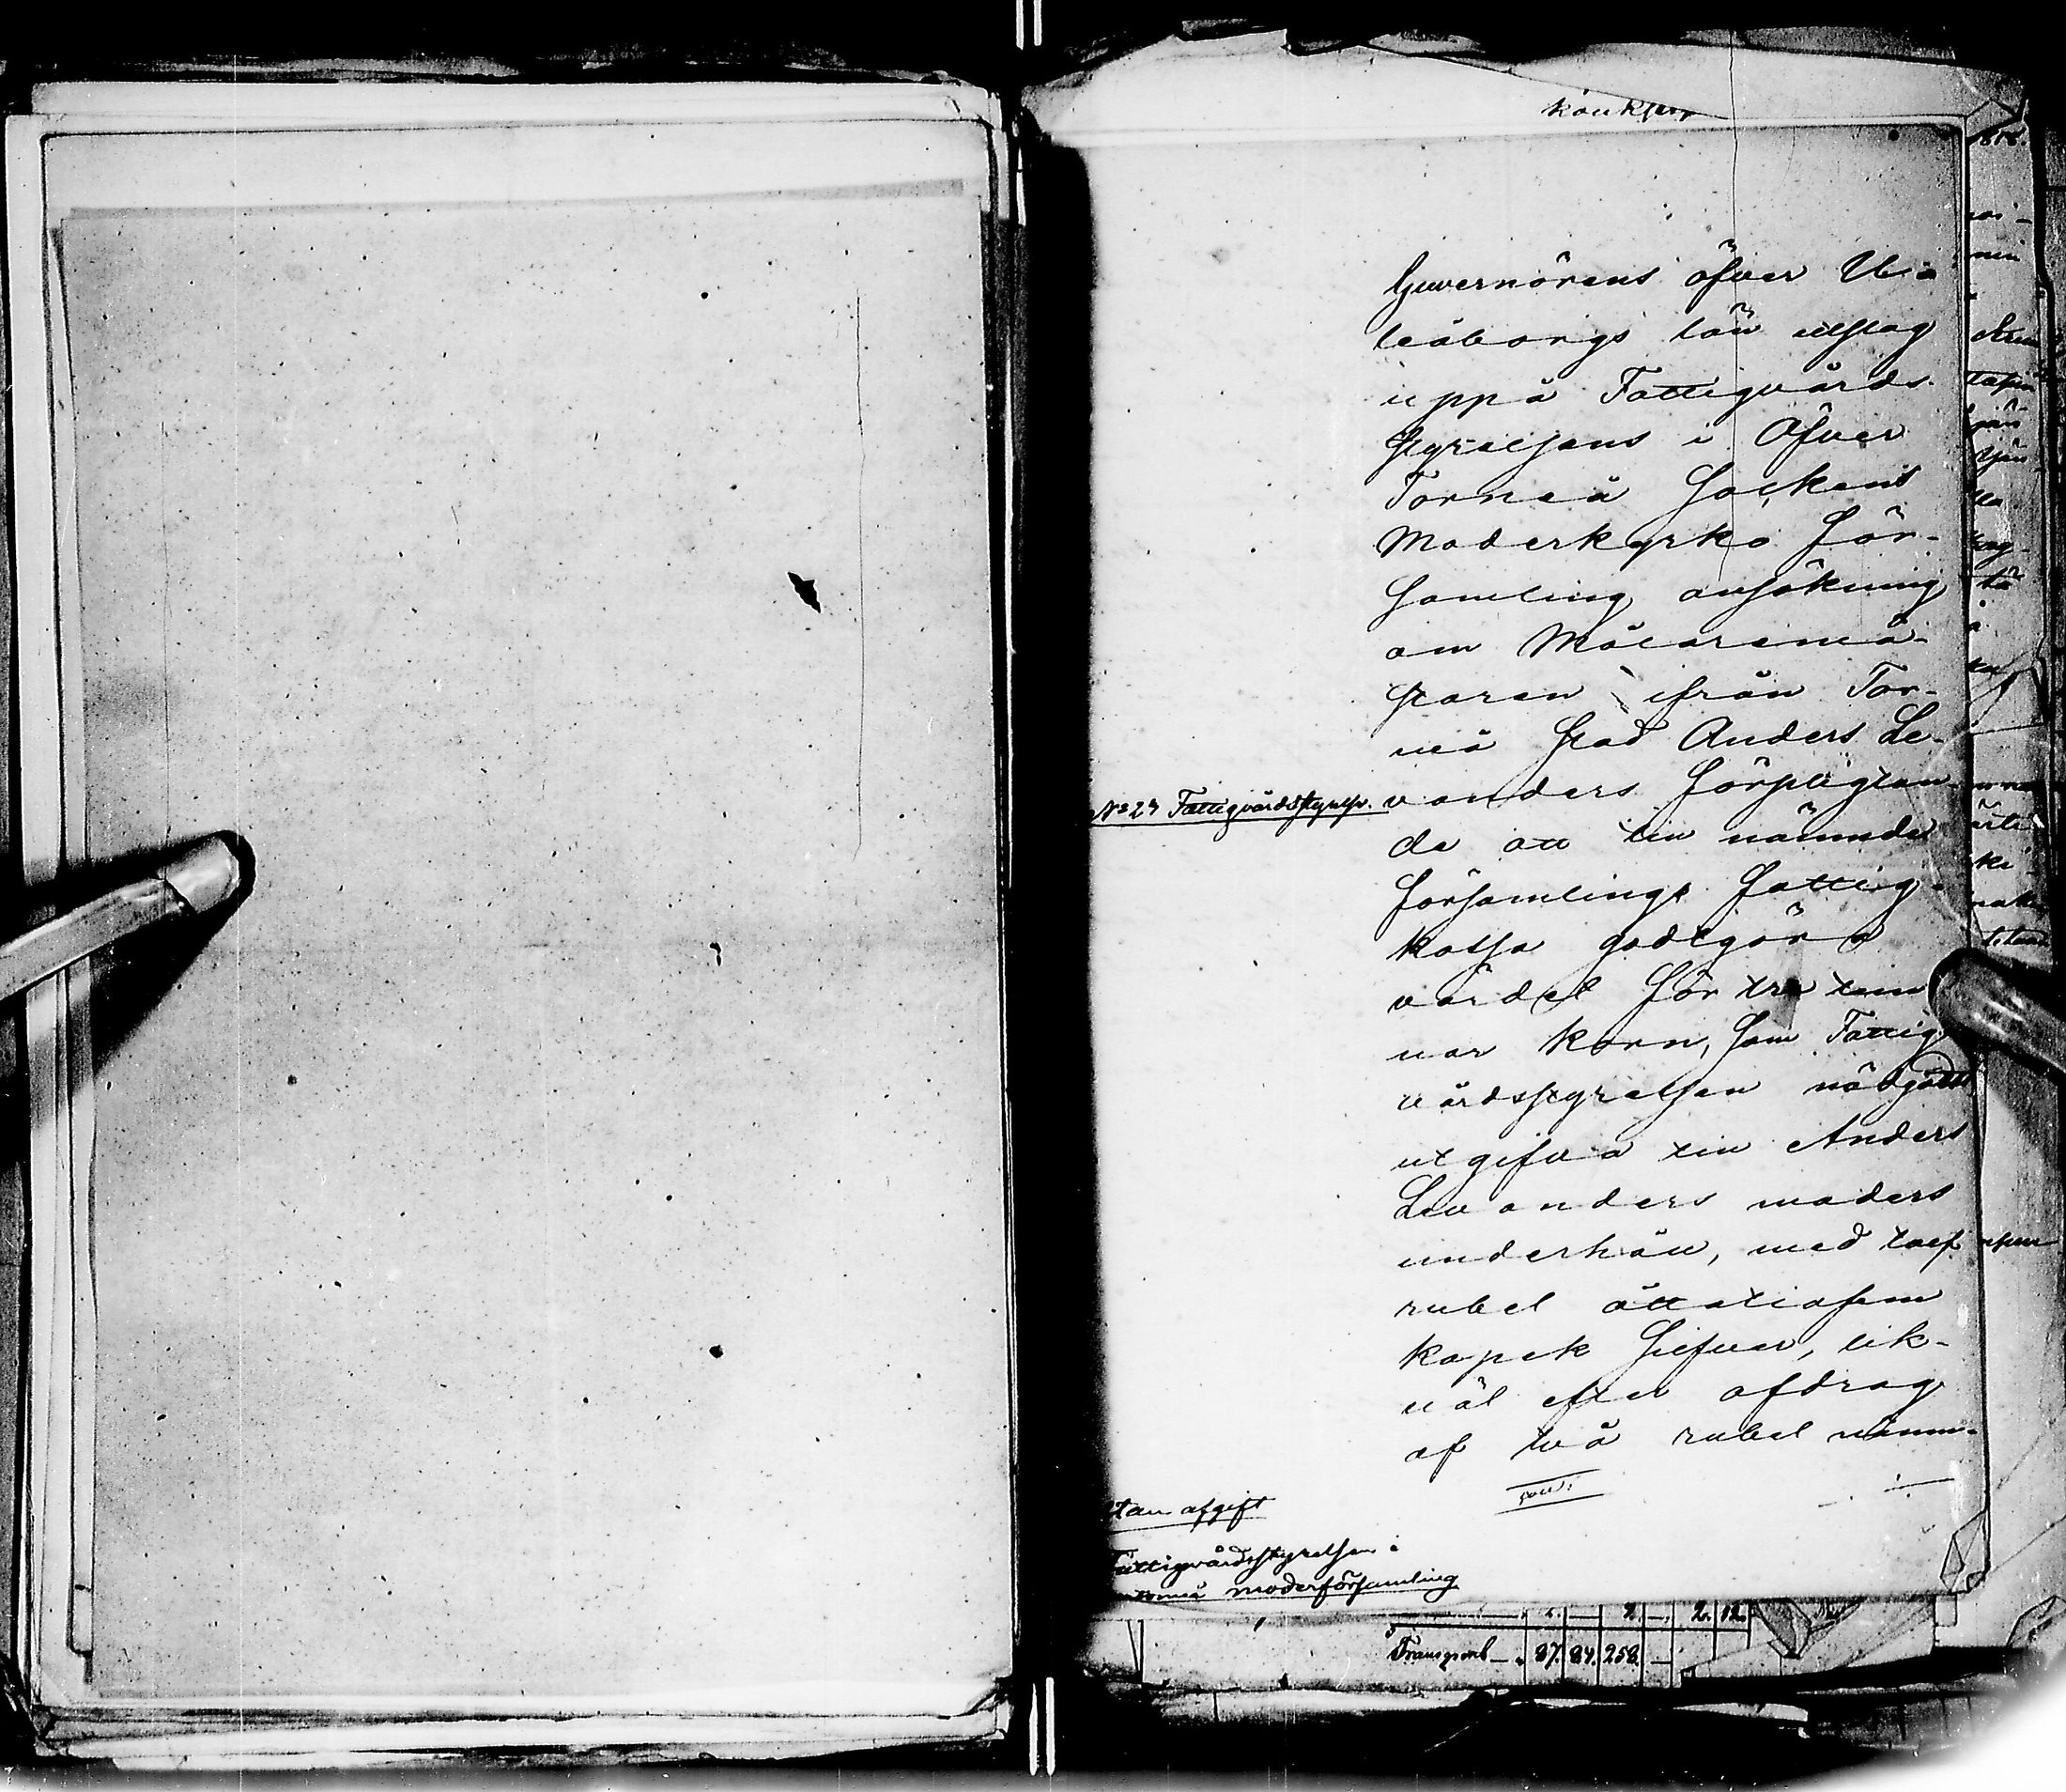 Guvernörens öfver Ule
leåborgs län utslag
uppå Fattigvårds-
styrelsens i Öfver
Torneå Sockens
Moderkyrko för-
samling ansökning
om Målaremä-
staren ifrån Tor-
neå stad Anders Le-
vanders förpligtan-
de att till nämnde
församlings fattig-
kassa godtgöra
värdet för tre tun
nor korn, som Fattig
vårdsstyrelsen nödgatts
utgifva till Anders
Levanders moders
underhåll, med tolf
rubel åttatiofem
kopek Silfver, lik-
väl efter afdrag
af två rubel nämn-
No 27 Fattigvårdsstyrelse.
utan afgift
Fattigvårdsstyrelsen i
Torneå moderförsamling
2. 12.
Transport — 87. 84. 258. —